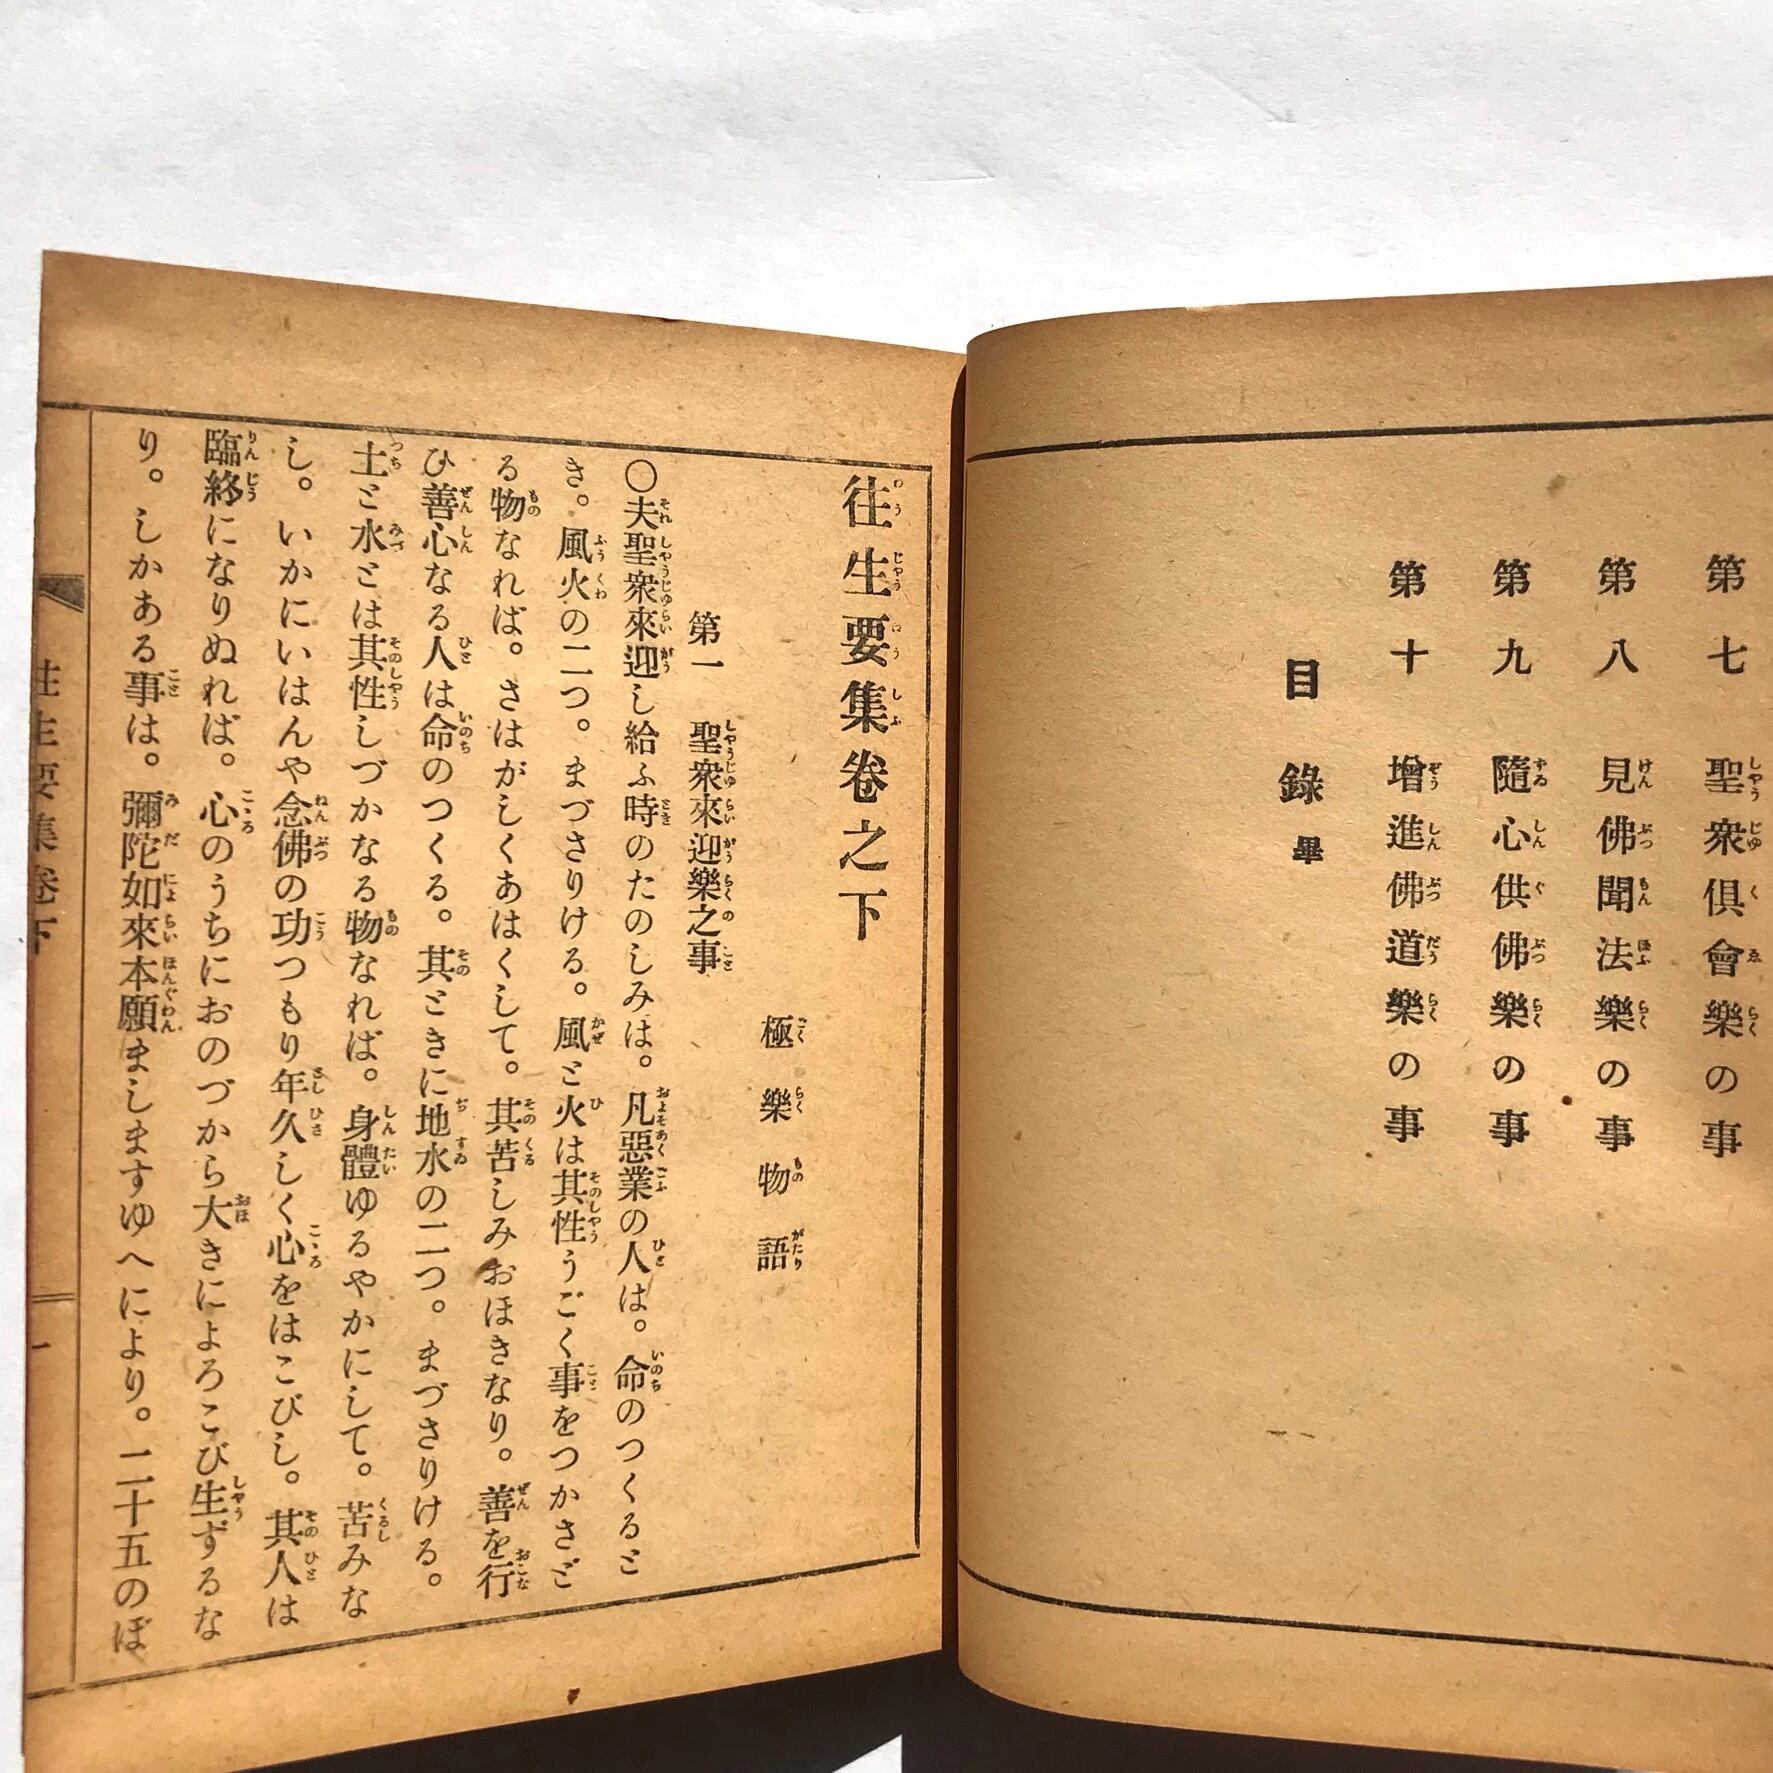 第七　聖衆俱會樂の事
第八　見佛聞法樂の事
第九　隨心供佛樂の事
第十　增進佛道樂の事
目錄畢
往生要集卷之下
極樂物語
第一　聖衆來迎樂之事
〇夫聖衆來迎し給ふ時のたのしみは。凡惡業の人は。命のつくると
き。風火の二つ。まづさりける。風と火は其性うごく事をつかさど
る物なれば。さはがしくあはくして。其苦しみおほきなり。善を行
ひ善心なる人は命のつくる。其ときに地水の二つ。まづさりける。
土と水とは其性しづかなる物なれば。身體ゆるやかにして。苦みな
し。いかにいはんや念佛の功つもり年久しく心をはこびし。其人は
臨終になりぬれば。心のうちにおのづから大きによろこび生ずるな
り。しかある事は。彌陀如來本願ましますゆへにより。二十五のぼ
往生要集卷下
一